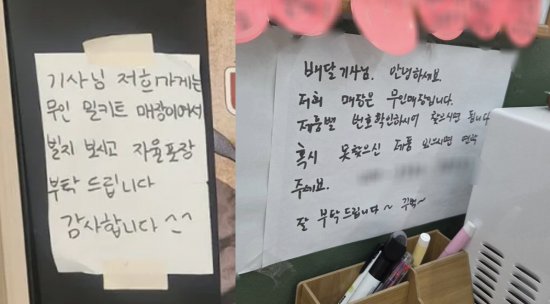 기사님 저희가게는
무인 밀키트 매장이어서
빌지 보시고 자율포장
부탁 드립니다
감사합니다 ^^
배달기사님. 안녕하세요.
저희 매장은 무인매장입니다.
제품별 번호확인하시어 찾으시면 됩니다
혹시 못찾으신 제품 있으시면 연락
주세요.
잘 부탁드립니다~ 꾸벅~